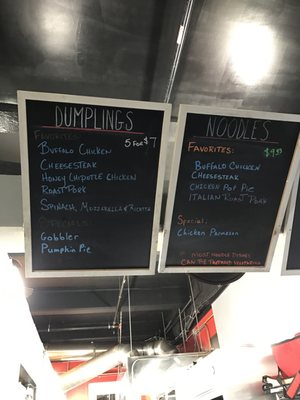 DUMPLINGS
5 FOR $7
FAVORITES:
BUFFALO CHICKEN
CHEESESTEAK
HONEY CHIPOTLE CHICKEN
ROAST PORK
SPINACH, MOZZARELLA & RICOTTA
SPECIALS:
Gobbler
Pumpkin Pie
NOODLES
FAVORITES:
BUFFALO CHICKEN
CHEESESTEAK
CHICKEN POT PIE
ITALIAN ROAST PORK
Special:
Chicken Parmesan
* MOST NOODLE DISHES
CAN BE VEGETARIAN